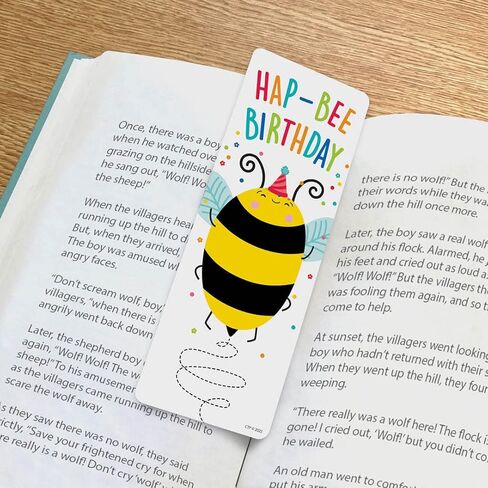 Once, there was a boy
when he watched over
grazing on the hillside
he sang out, "Wolf! Wolf
the sheep!"
When the villagers hear
running up the hill to d
But, when they arrived,
The boy was amused wh
angry faces.
"Don't scream wolf, boy,
villagers, "when there is
angrily went back down
Later, the shepherd boy
again, "Wolf! Wolf! The w
sheep!" To his amusemen
as the villagers came running up the hill to
scare the wolf away.
As they saw there was no wolf, they said
strictly, "Save your frightened cry for when
there really is a wolf! Don't cry 'wolf' w
HAP-BEE
BIRTHDAY
CTP © 2022
there is no wolf!" But the
their words while they wa
down the hill once more.
Later, the boy saw a real wolf
around his flock. Alarmed, he j
his feet and cried out as loud as
"Wolf! Wolf!" But the villagers t
was fooling them again, and so t
come to help.
At sunset, the villagers went looking
boy who hadn't returned with their s
When they went up the hill, they foun
weeping.
"There really was a wolf here! The flock is
gone! I cried out, 'Wolf!' but you didn't co
he wailed.
An old man went to comfort
put his arm